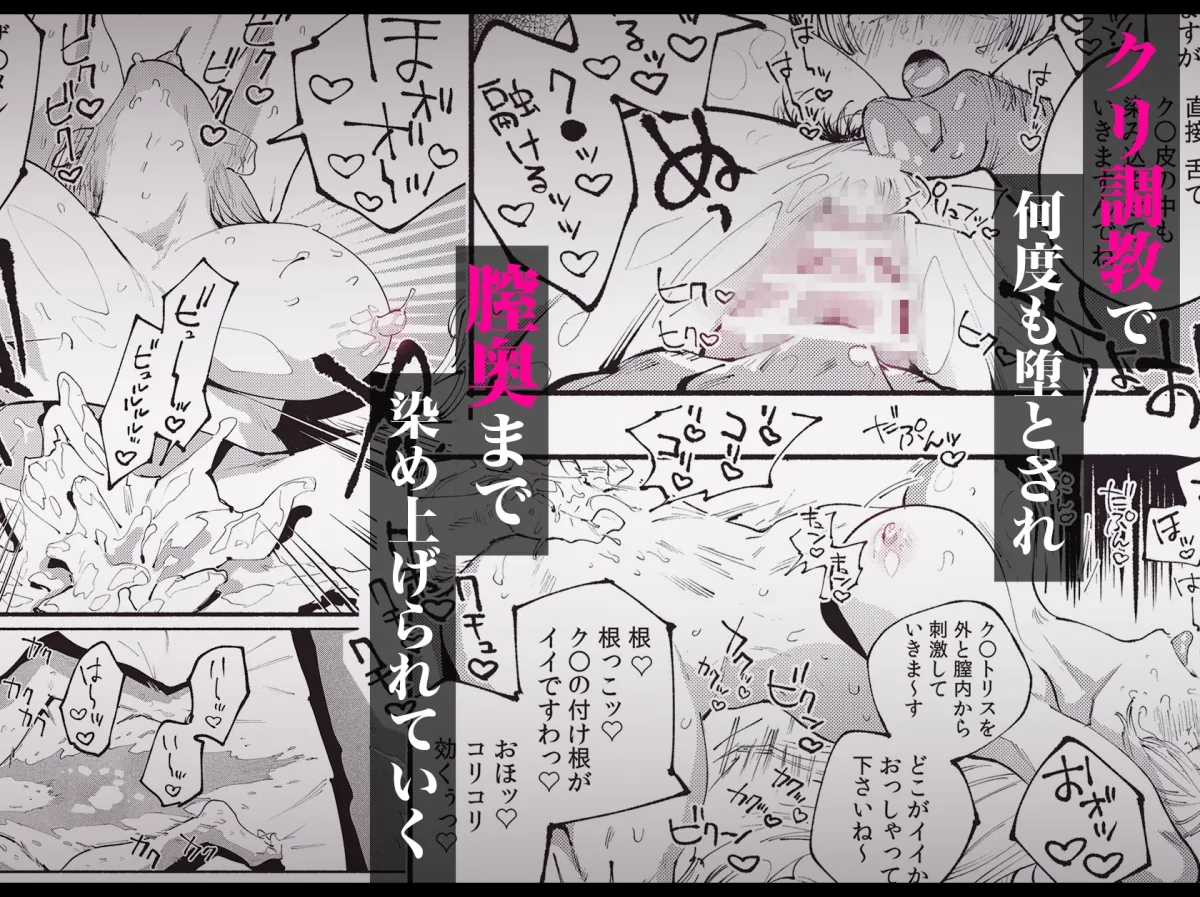 クリ調教で
何度も堕とされ
膣奥まで
染め上げられていく
直接 舌で
ク〇皮の中も
ぬっ
ク●ッ♡
融けるッッ♡♡
パリュフッ♡
ビクッ♡
はーっ♡
ほぉ゙ぉ゙ーッ♡♡♡
ビクッ♡
ビクッ♡
ビュー〜ッ♡
ビュルルルッ♡
だぷんッ♡
だぷんっ♡
コリッ♡
コリッ♡
キュンッ♡
キュンッ♡
ク〇トリスを
外と膣内から
刺激して
いきま〜す
どこがイイか
おっしゃって
下さいね〜
根♡
根っこッ♡
ク〇の付け根が
イイですわっ♡
おほッ♡
コリコリ
効くぅっ♡
ビクンッ♡
ビク〜ンッ♡
カクカクッ♡
お゙ォ゙ッ♡♡
はーっ♡♡
カクッ
カク
カク
カク